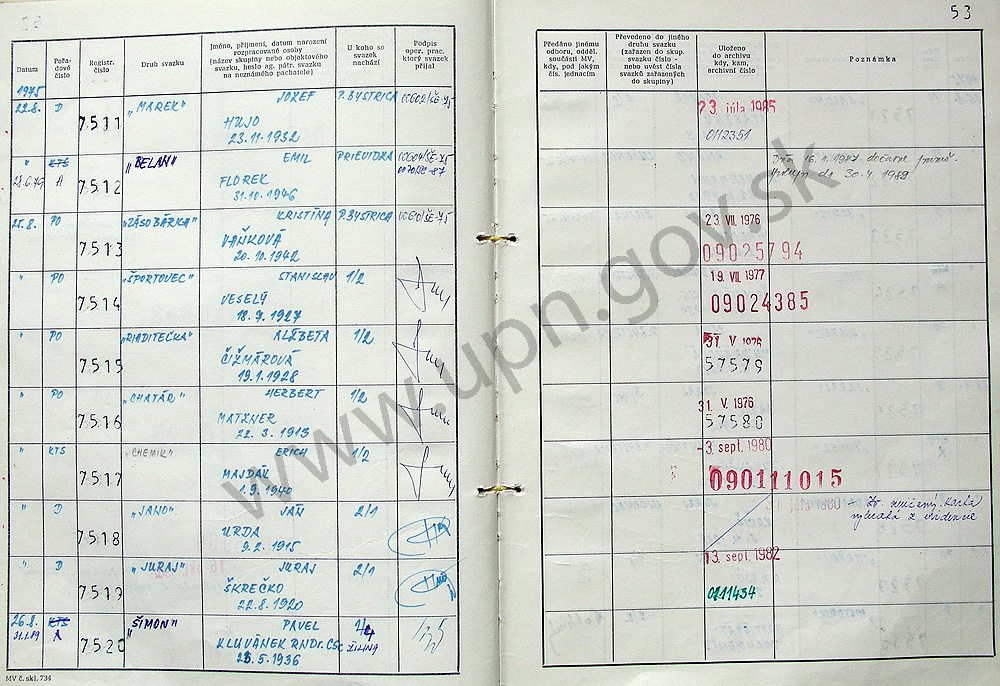 53
Datum
Pořadové číslo
Registr. číslo
Druh svazku
Jméno, příjmení, datum narození rozpracované osoby (název skupiny nebo objektového svazku, heslo ag. pátr. svazku na neznámého pachatele)
U koho se svazek nachází
Podpis oper. prac. který svazek přijal
Předáno jinému odboru, odděl. součásti MV, kdy, pod jakým čís. jednacím
Převedeno do jiného druhu svazku (zařazen do skup. svazku číslo - nebo uvést čísla svazků zařazených do skupiny)
Uloženo do archivu kdy, kam, archivní číslo
Poznámka
1975
22.8. D 7511 "MAREK" JOZEF P. BYSTRICA 00602/ŠE-75
HUJO
23.11.1932
23. júla 1985
0112351
" KTS "BELAN" EMIL PRIEVIDZA 00604/ŠE-75
A 7512 FLOREK
31.10.1946
16.1.1987
30.4.1989
25.8. PO "ZÁSOBÁRKA" KRISTÍNA P. BYSTRICA 00610/ŠE-75
7513 VAŇKOVÁ
20.10.1942
23. VII. 1976
09025794
" PO "ŠPORTOVEC" STANISLAV 1/2
7514 VESELÝ
18.9.1927
19. VII. 1977
09024385
" PO "RIADITEĽKA" ALŽBETA 1/2
7515 ČIŽMÁROVÁ
19.1.1928
31. V. 1976
57579
" PO "CHATÁR" HERBERT 1/2
7516 MATZNER
22.3.1913
31. V. 1976
57580
" KTS "CHEMIK" ERICH 1/2
7517 MAJDÁK
1.9.1940
-3. sept. 1980
090111015
" D "JANO" JÁN 2/1
7518 URDA
9.2.1915
" D "JURAJ" JURAJ 2/1
7519 ŠKREČKO
22.8.1920
13. sept. 1982
0211434
26.8. KTS "ŠIMON" PAVEL
A 7520 KLUVÁNEK RNDr. CSc ŽILINA
25.5.1936
MV č. skl. 734
www.upn.gov.sk